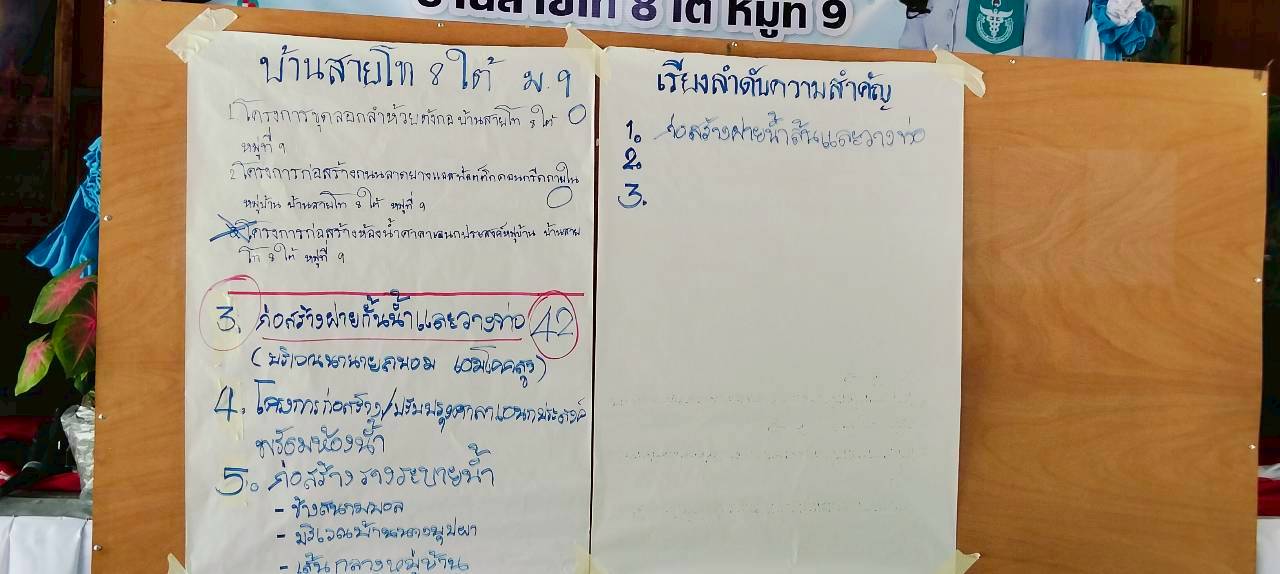 บ้านสายโท 8 ใต้ หมู่ที่ 9
บ้านสายโท 8 ใต้ ม.9
1.โครงการขุดลอกลำห้วยตังกอ บ้านสายโท 8 ใต้ 0
หมู่ที่ 9
2.โครงการก่อสร้างถนนลาดยางแอสฟัลท์ติกคอนกรีตภายใน
หมู่บ้าน บ้านสายโท 8 ใต้ หมู่ที่ 9 0
3.โครงการก่อสร้างห้องน้ำศาลาเอนกประสงค์หมู่บ้าน บ้านสาย
โท 8 ใต้ หมู่ที่ 9
3. ก่อสร้างฝายกั้นน้ำและวางท่อ 42
(บริเวณนานาย
4. โครงการก่อสร้าง/ปรับปรุงศาลาเอนกประสงค์
พร้อมห้องน้ำ
5. ก่อสร้างรางระบายน้ำ
- ข้างสนามบอล
- บริเวณบ้านนางบุปผา
- เส้นกลางหมู่บ้าน
เรียงลำดับความสำคัญ
1. ก่อสร้างฝายน้ำล้นและวางท่อ
2.
3.